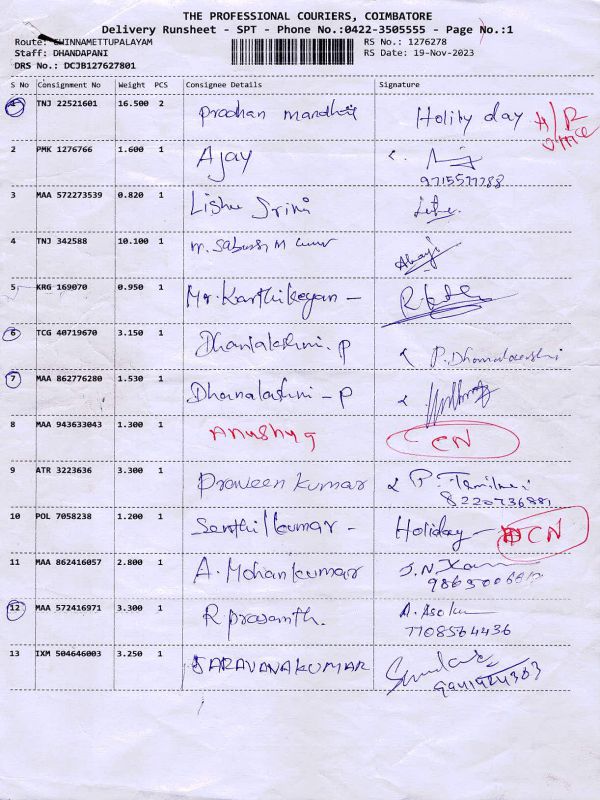 THE PROFESSIONAL COURIERS, COIMBATORE
Delivery Runsheet - SPT - Phone No.:0422-3505555 - Page No.:1
Route: CHINNAMETTUPALAYAM RS No.: 1276278
Staff: DHANDAPANI RS Date: 19-Nov-2023
DRS No.: DCJB127627801
S No Consignment No Weight PCS Consignee Details Signature
1 TNJ 22521601 16.500 2 Pradhan Holiday day H/R
office
2 PMK 1276766 1.600 1 Ajay
9715577788
3 MAA 572273539 0.820 1 Lishu Srini
4 TNJ 342588 10.100 1
5 KRG 169070 0.950 1 Mr. Karthikeyan -
6 TCG 40719670 3.150 1 Dhanalakshmi. P P. Dhanalakshmi
7 MAA 862776280 1.530 1 Dhanalashmi - P
8 MAA 943633043 1.300 1 CN
9 ATR 3223636 3.300 1 Praveen kumar P. Tamil
10 POL 7058238 1.200 1 Senthil kumar - Holiday - CN
11 MAA 862416057 2.800 1 A. Mohan kumar
12 MAA 572416971 3.300 1 R prasanth. A. Asok
7708564436
13 IXM 504646003 3.250 1 SARAVANAKUMAR
9941924303